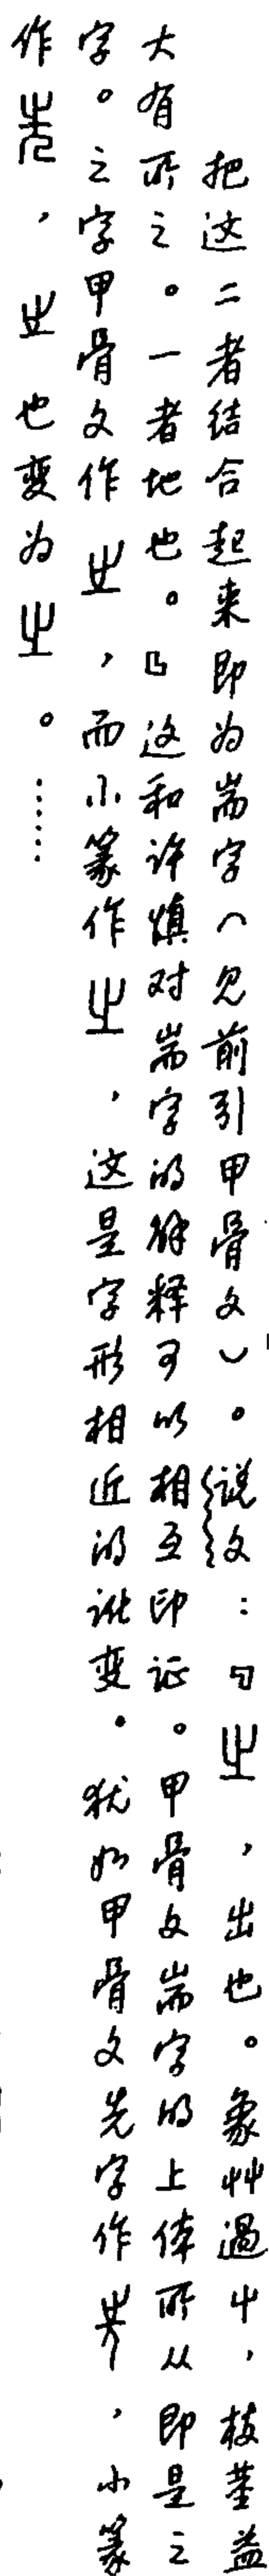 把这二者结合起来即为耑字(见前引甲骨文)。说文:「㞢,出也。象艸过屮,枝茎益
大有所之。一者地也。」这和许慎对耑字的解释可以相互印证。甲骨文耑字的上体所从即是之
字。之字甲骨文作,而小篆作㞢,这是字形相近的讹变。犹如甲骨文先字作,小篆
作,也变为㞢。……